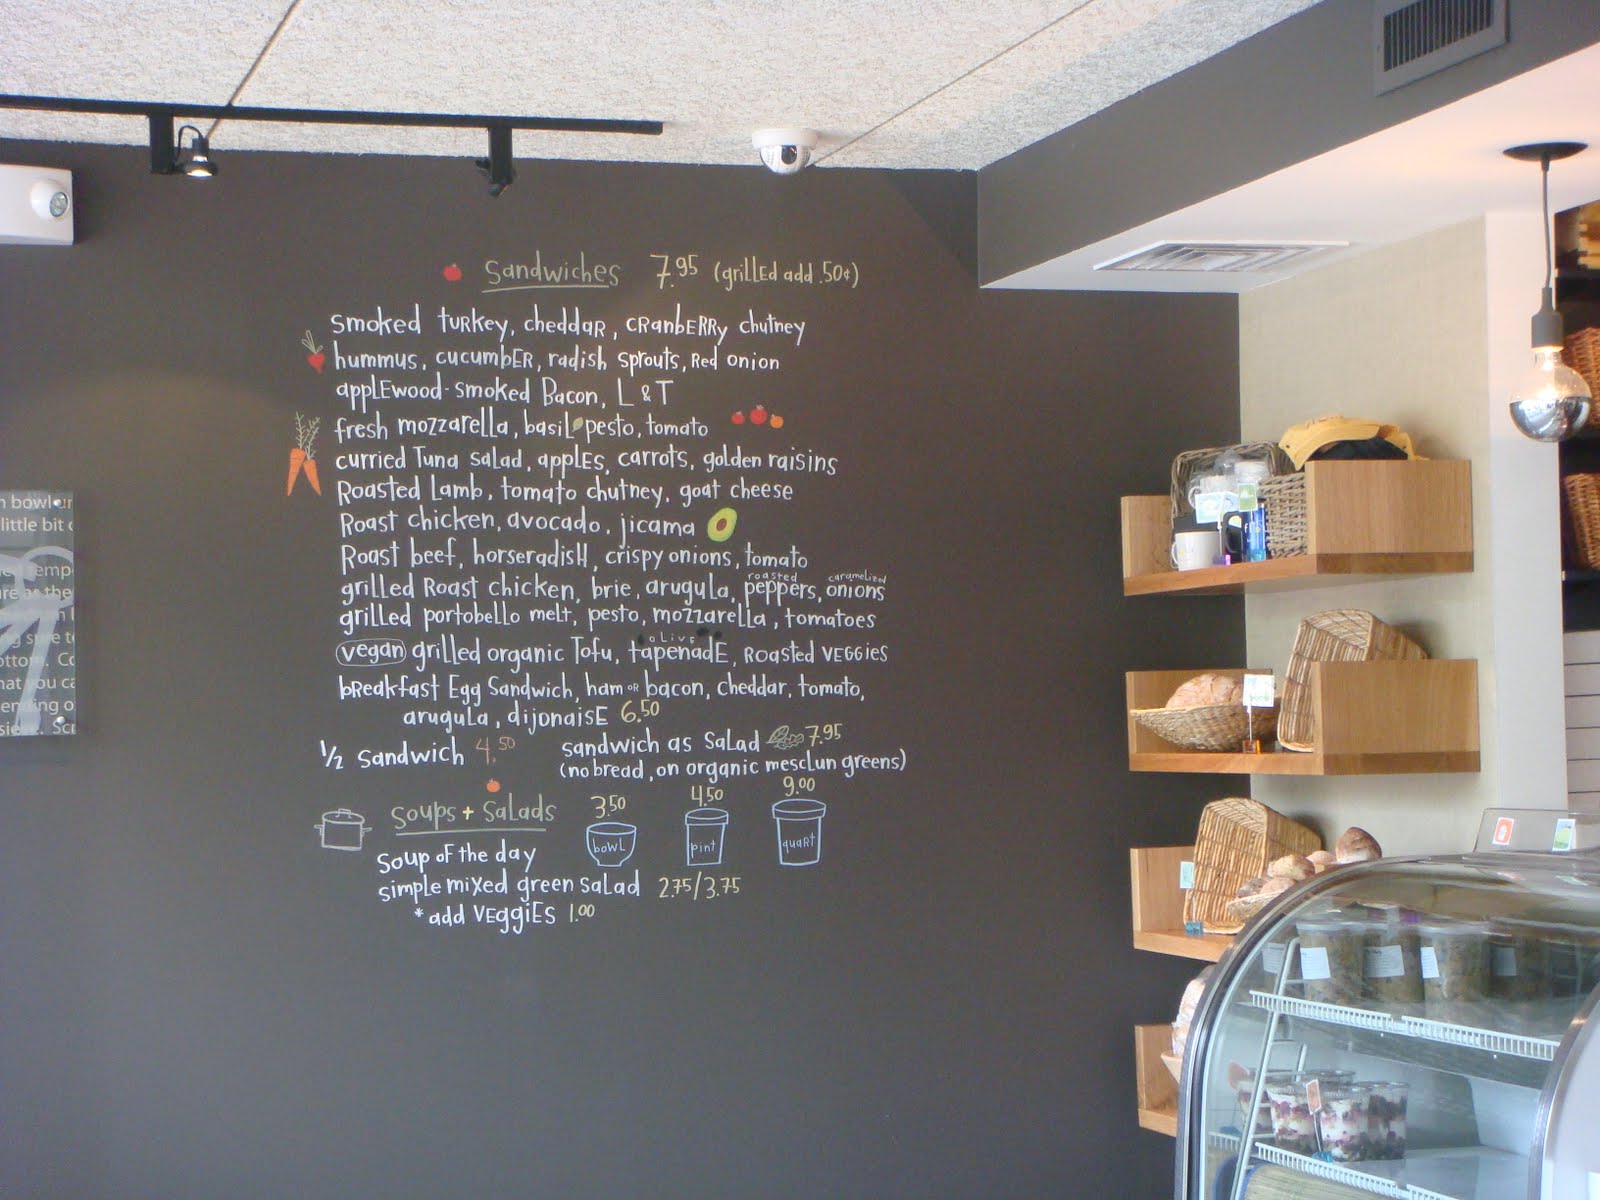 Sandwiches 7.95 (grilled add .50¢)
smoked turkey, cheddar, cranberry chutney
hummus, cucumber, radish sprouts, red onion
applewood-smoked Bacon, L & T
fresh mozzarella, basil pesto, tomato
curried Tuna salad, apples, carrots, golden raisins
Roasted Lamb, tomato chutney, goat cheese
Roast chicken, avocado, jicama
Roast beef, horseradish, crispy onions, tomato
grilled Roast chicken, brie, arugula, roasted peppers, caramelized onions
grilled portobello melt, pesto, mozzarella, tomatoes
vegan grilled organic Tofu, olive tapenade, Roasted veggies
breakfast Egg Sandwich, ham or bacon, cheddar, tomato,
arugula, dijonaise 6.50
1/2 sandwich 4.50
sandwich as salad 7.95
(no bread, on organic mesclun greens)
Soups + Salads
3.50 4.50 9.00
bowl pint quart
Soup of the day
simple mixed green salad 2.75/3.75
* add veggies 1.00
bowl
little bit